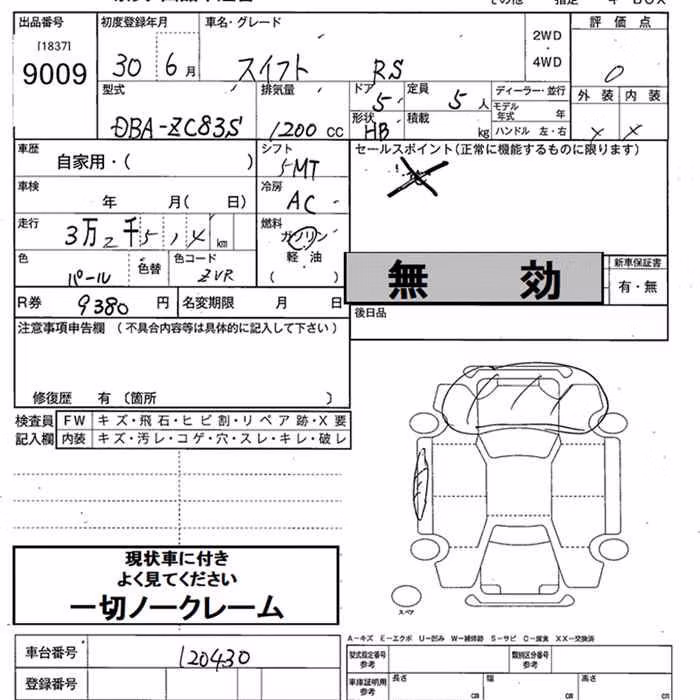 出品番号 初度登録年月 車名・グレード 評価点
[1837]
9009 30 6月 スイフト RS 2WD・4WD 0
型式 排気量 ドア 5 定員 5人 ディーラー・並行 外装 内装
モデル年式 年
DBA-ZC83S 1200 CC 形状 HB 積載 kg ハンドル 左・右 X X
車歴 シフト セールスポイント(正常に機能するものに限ります)
自家用・( ) 5MT
車検 年 月( 日) 冷房 AC
走行 3万2千5, km 燃料 ガソリン
軽・油
( )
色 パール 色替 色コード ZVR
無効 新車保証書
有・無
R券 9380 円 名変期限 月 日 後日品
注意事項申告欄 (不具合内容等は具体的に記入して下さい)
修復歴 有 〔箇所 〕
検査員 FW キズ・飛石・ヒビ割・リペア跡・X要
記入欄 内装 キズ・汚レ・コゲ・穴・スレ・キレ・破レ
現状車に付き
よく見てください
一切ノークレーム
スペア
A-キズ E-エクボ U-凹み W-補修跡 S-サビ C-腐食 XX-交換済
車台番号 120430 型式指定番号 参考 類別区分番号 参考
登録番号 車庫証明用 参考 長さ cm 幅 cm 高さ cm